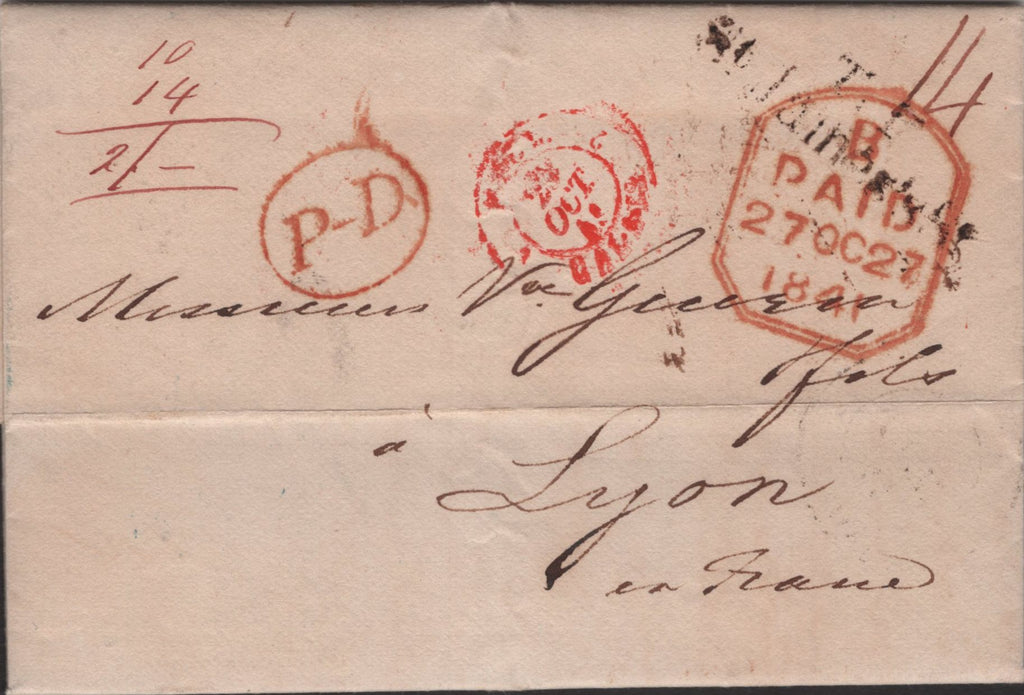 10
14
2/-
1/4
P-D
28
OCT
CALAIS
T.P
B
PAID
27 OC 27
1841
Messieurs Ve Guerin
& fils
à
Lyon
en France